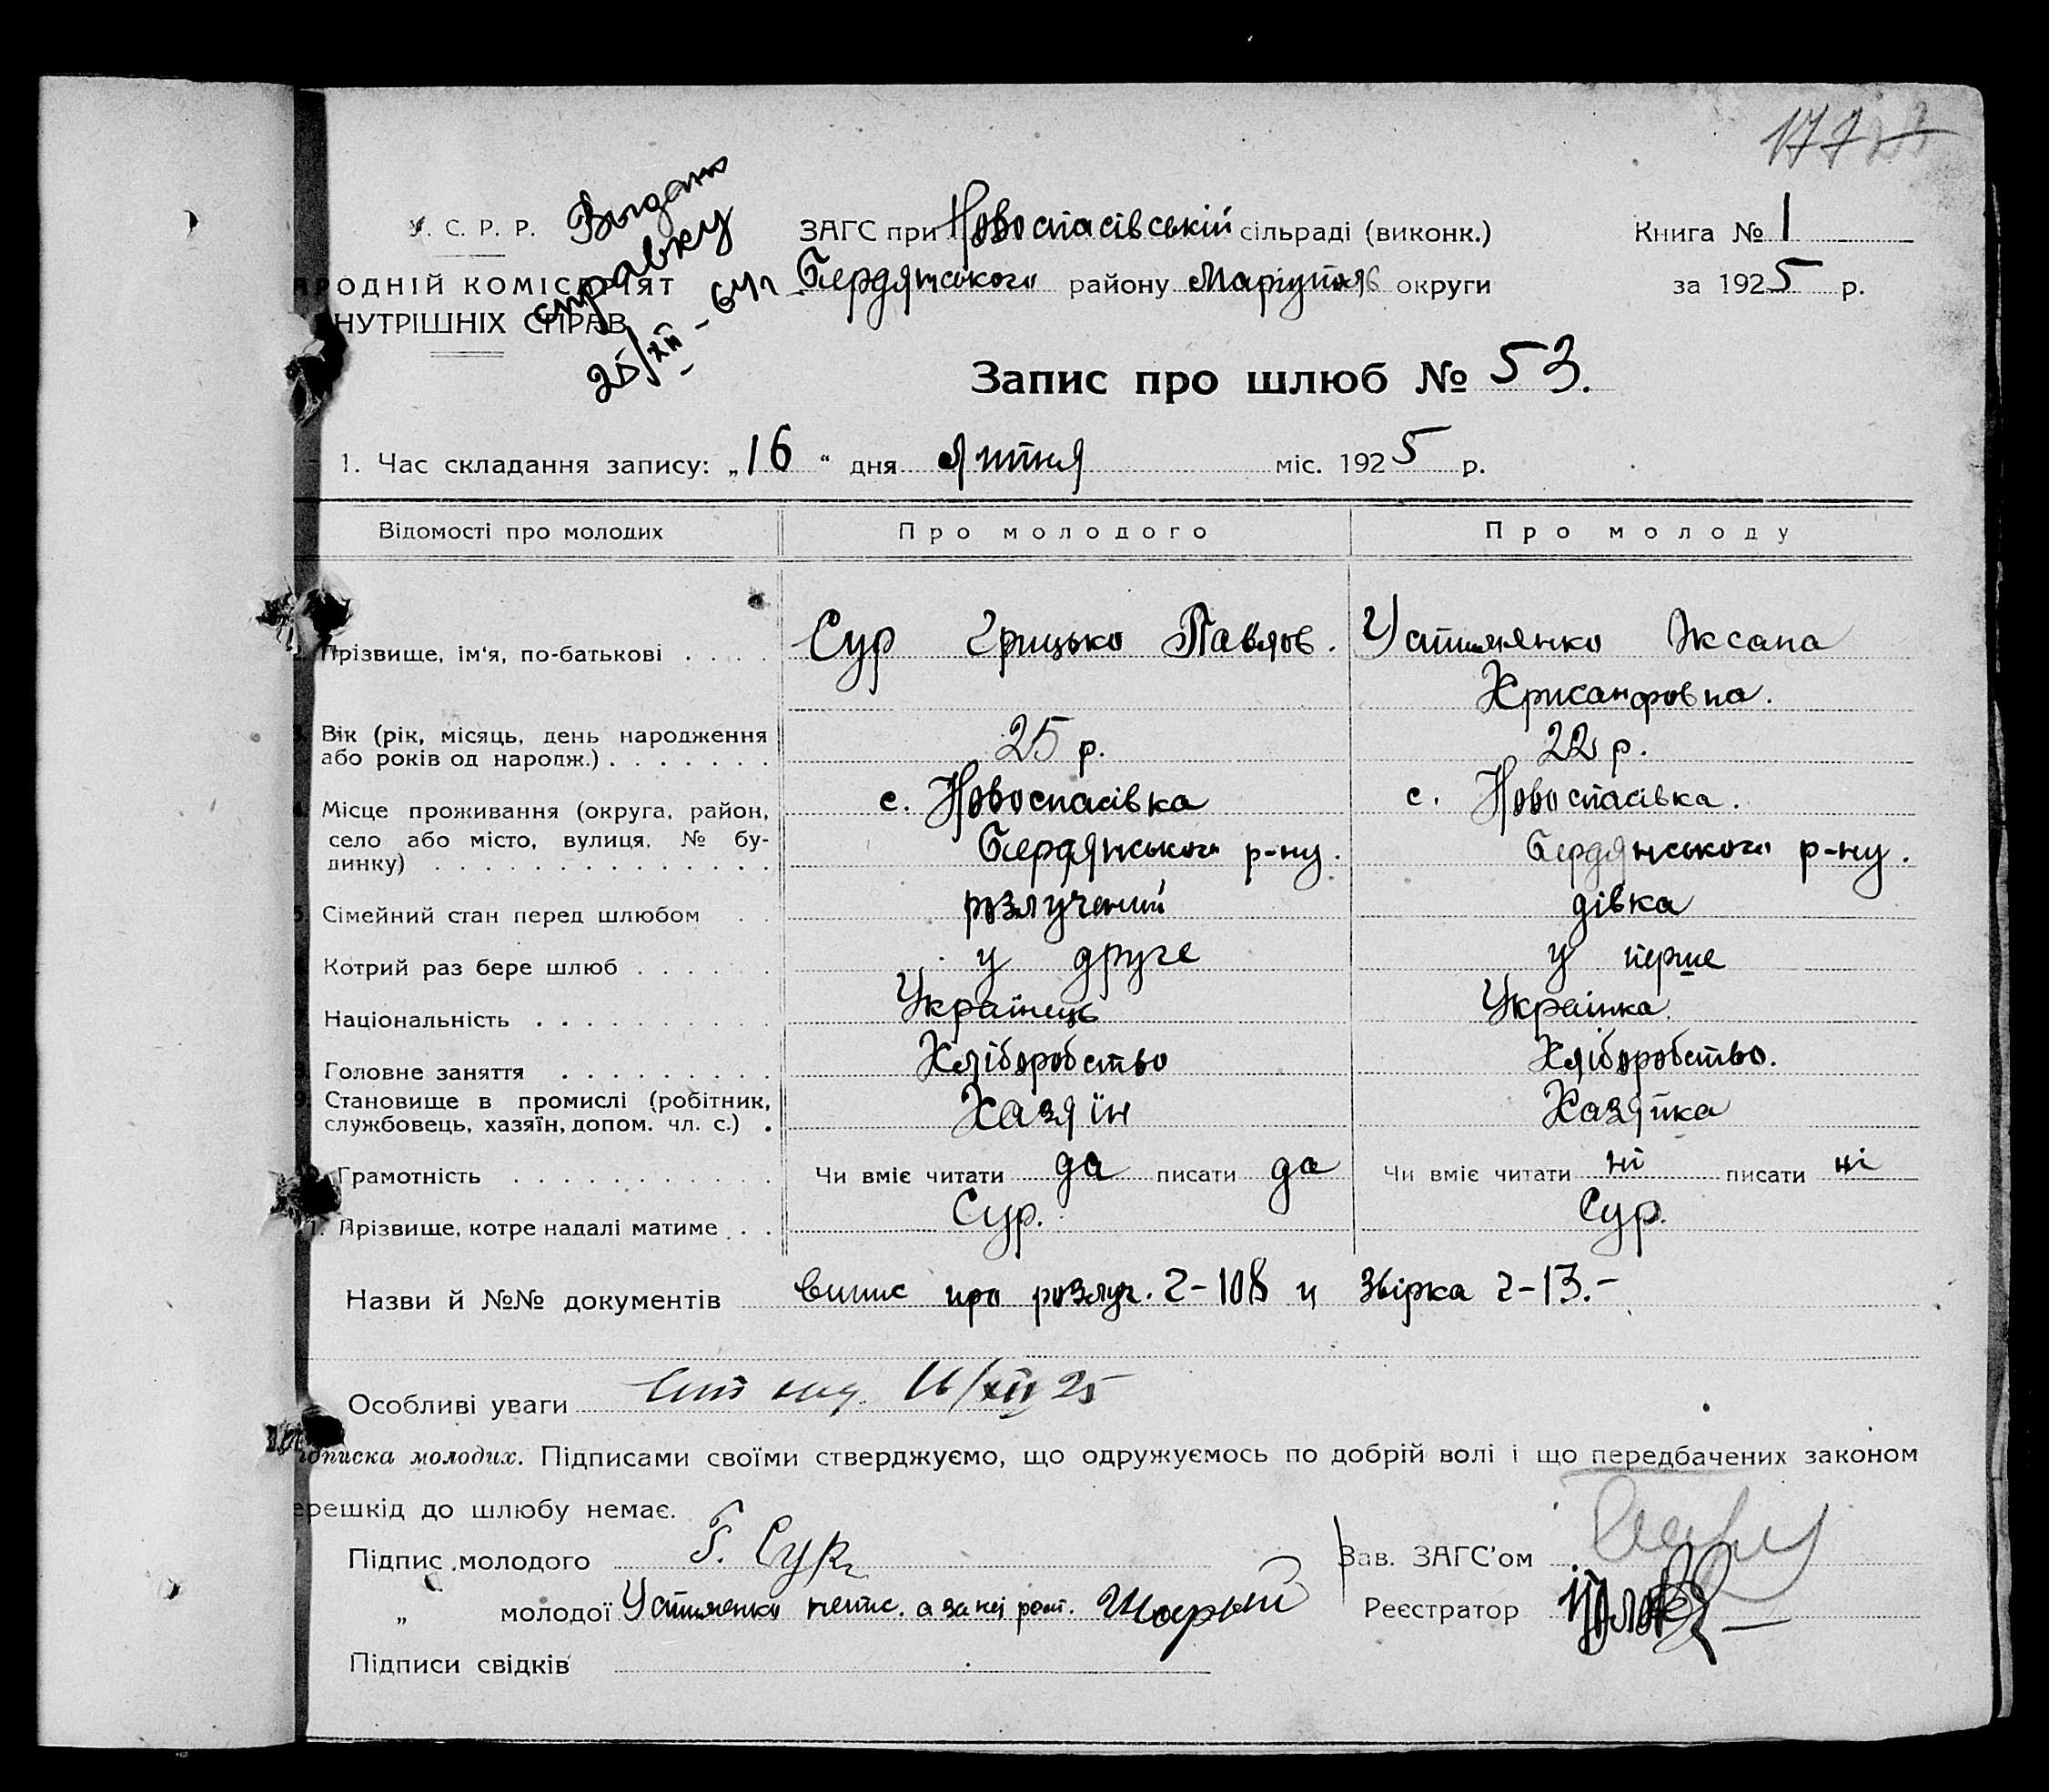 У. С. Р. Р.
Выдано
справку
25/XII - 64 г
РОДНІЙ КОМІСАРІЯТ
НУТРІШНІХ СПРАВ
ЗАГС при Новоспасівській сільраді (виконк.)
Бердянського району Маріупол округи
Книга № 1
за 1925 р.
Запис про шлюб № 53.
1. Час складання запису: „16“ дня Липня міс. 1925 р.
Відомості про молодих Про молодого Про молоду
Прізвище, ім'я, по-батькові . . . . Сур Грицько Павлов. Устименко Оксана
Хрисанфовна.
Вік (рік, місяць, день народження
або років од народж.) . . . . . . . 25 р. 22 р.
4. Місце проживання (округа, район, с. Новоспасівка с. Новоспасівка.
село або місто, вулиця, № бу- Бердянського р-ну. Бердянського р-ну.
динку) . . . . . . . . . . . . . .
5. Сімейний стан перед шлюбом . . розлучений дівка
Котрий раз бере шлюб . . . . . . у друге у перше
Національність . . . . . . . . . . Українець Українка.
Головне заняття . . . . . . . . . Хліборобство Хліборобство.
9. Становище в промислі (робітник,
службовець, хазяїн, допом. чл. с.) . Хазяїн Хазяйка
Грамотність . . . . . . . . . . . Чи вміє читати да писати да Чи вміє читати ні писати ні
Прізвище, котре надалі матиме . . Сур. Сур.
Назви й №№ документів випис про розлуч. 2-108 и збірка 2-13.-
Особливі уваги 16/XII 25
дписка молодих. Підписами своїми стверджуємо, що одружуємось по добрій волі і що передбачених законом
ерешкід до шлюбу немає.
Підпис молодого Г. Сур
Зав. ЗАГС'ом
„ молодої Устименко непис. а за неі рост. Шарый
Реєстратор
Підписи свідків